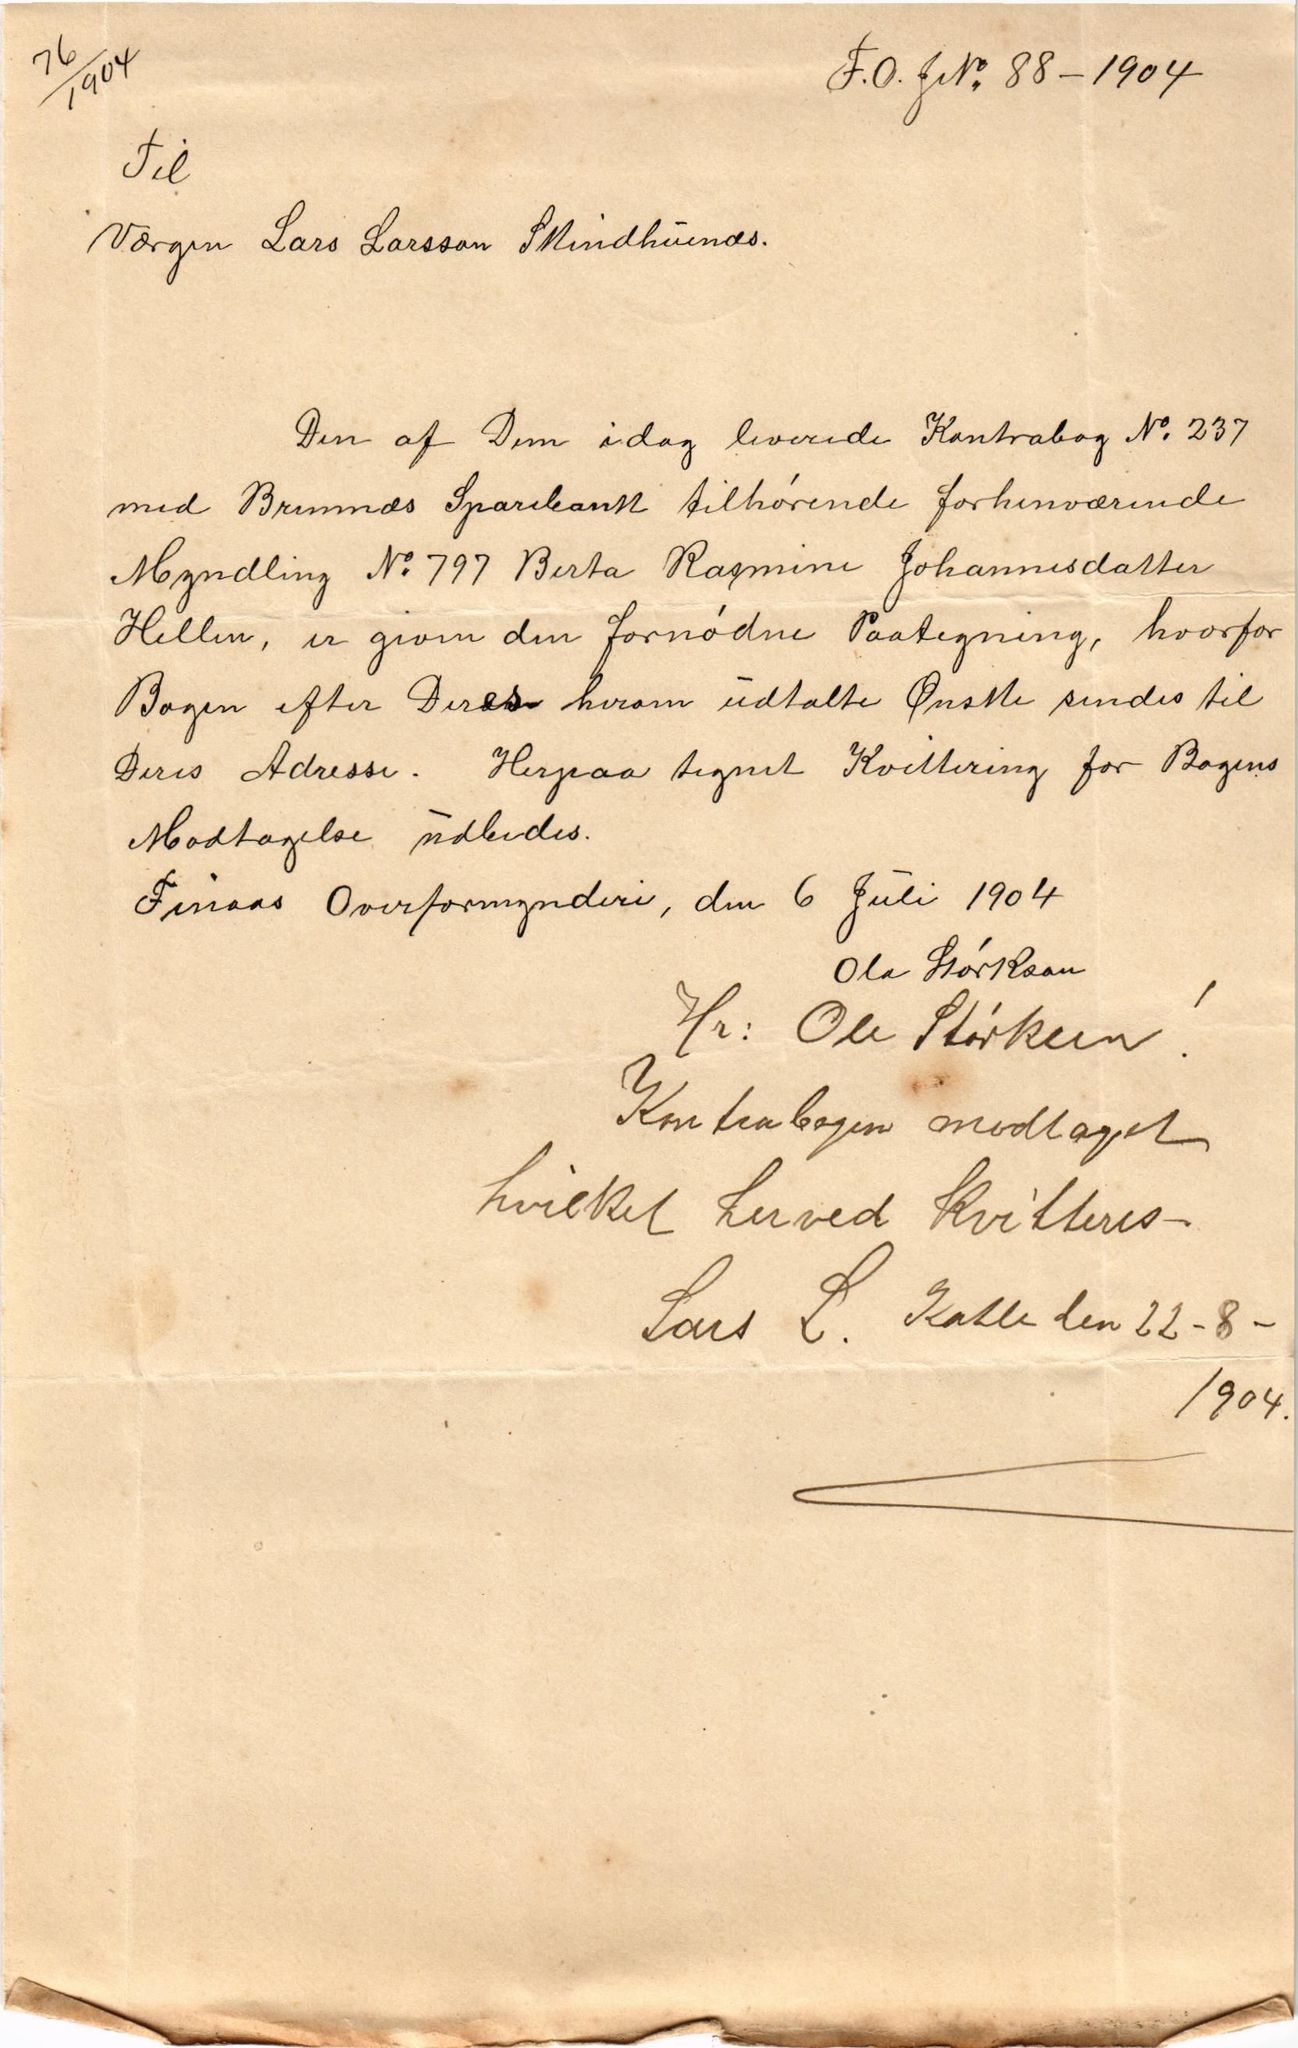 76/1904
F.O. J.No. 88 - 1904
Til
Værgen Lars Larsson Skindhuenæs.
Den af Dem idag leverede Kontrabog No. 237
med Bremnæs Sparebank tilhørende forhenværende
Myndling No. 797 Berta Rasmine Johannesdatter
Hellen, er given den fornødne Paategning, hvorfor
Bogen efter Deres herom udtalte Ønske sendes til
Deres Adresse. Herpaa tegnet Kvittering for Bogens
Modtagelse udbedes.
Finaas Overformynderi, den 6 Juli 1904
Ole Størkson
Hr: Ole Størksen!
Kontrabogen modtaget
hvilket herved kvitteres -
Lars L. Katle den 22 - 8 -
1904.